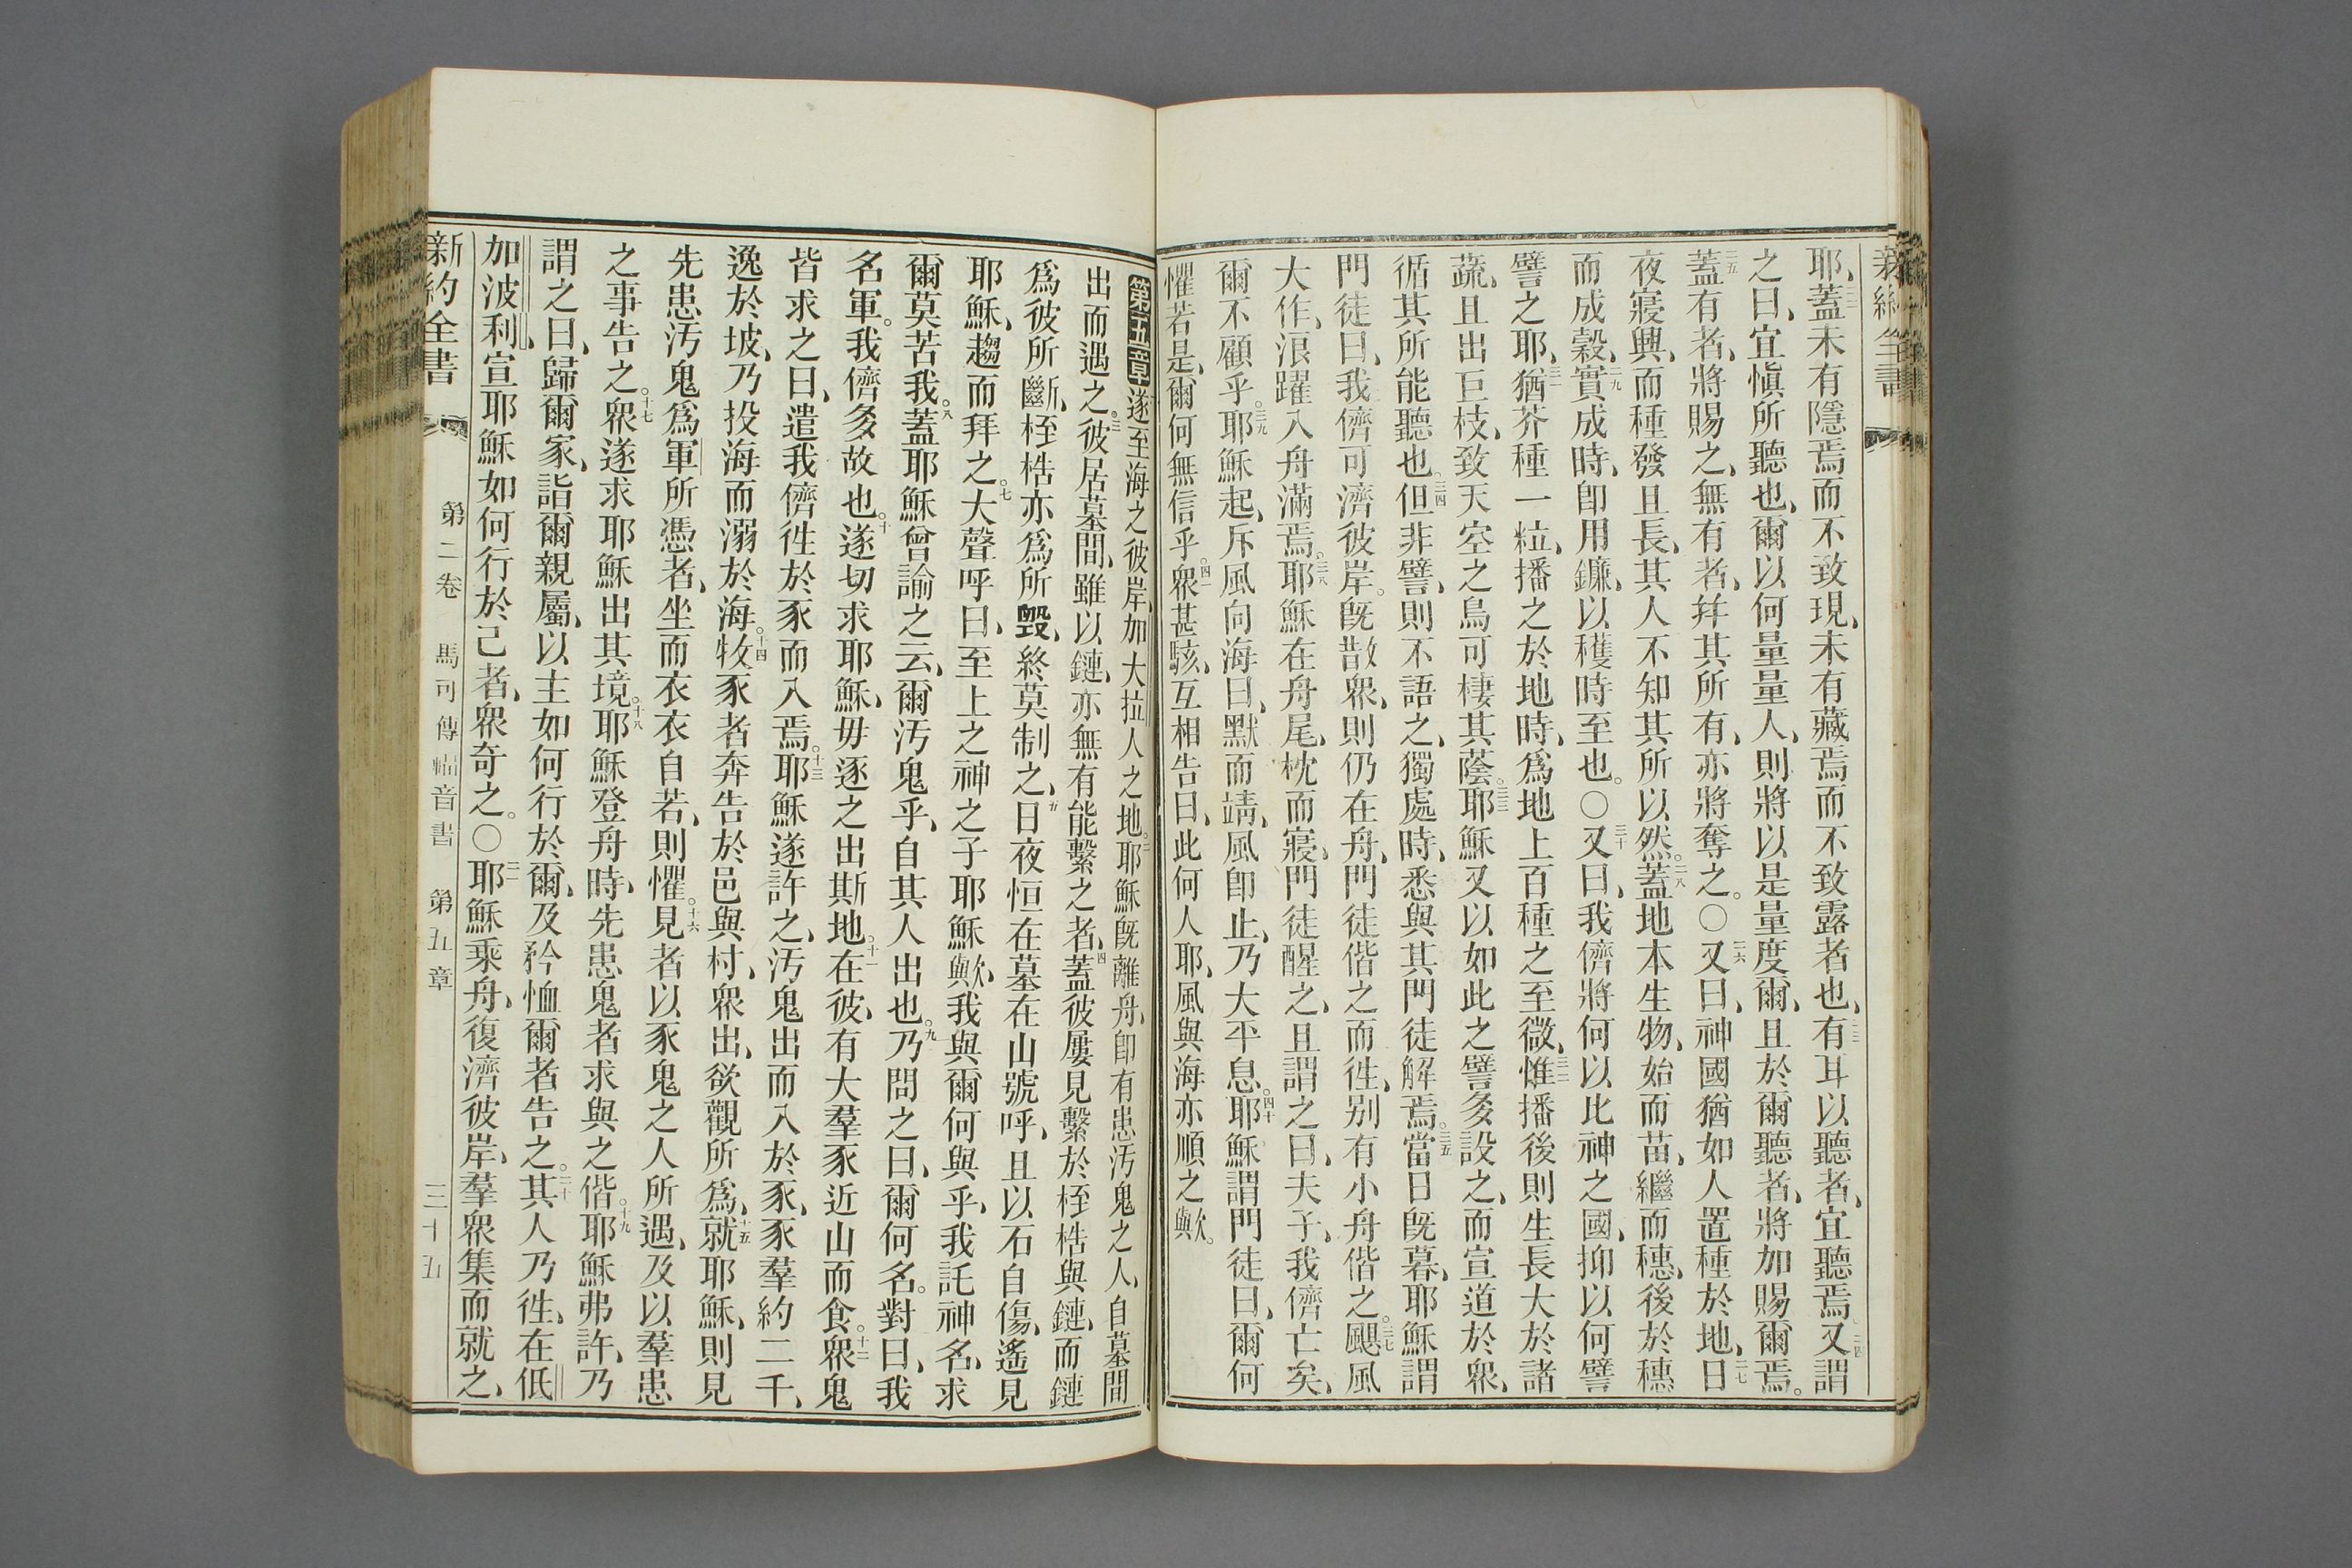 新約全書
耶、蓋未有隱焉而不致現、未有藏焉而不致露者也、有耳以聽者、宜聽焉。又謂
之曰、宜愼所聽也、爾以何量量人、則將以是量度爾、且於爾聽者、將加賜爾焉。
蓋有者、將賜之、無有者、幷其所有、亦將奪之。〇又曰、神國猶如人置種於地、日
夜寢興、而種發且長、其人不知其所以然。蓋地本生物、始而苗、繼而穗、後於穗
而成穀、實成時、卽用鐮、以穫時至也。〇又曰、我儕將何以比神之國、抑以何譬
譬之耶、猶芥種一粒、播之於地時、爲地上百種之至微、惟播後則生長大於諸
蔬、且出巨枝、致天空之鳥可棲其蔭。耶穌又以如此之譬多設之、而宣道於衆、
循其所能聽也。但非譬、則不語之、獨處時、悉與其門徒解焉。當日旣暮、耶穌謂
門徒曰、我儕可濟彼岸。旣散衆、則仍在舟、門徒偕之而徃、别有小舟偕之。颶風
大作、浪躍入舟滿焉。耶穌在舟尾、枕而寢。門徒醒之、且謂之曰、夫子、我儕亡矣、
爾不顧乎。耶穌起、斥風向海曰、默而靖、風卽止、乃大平息。耶穌謂門徒曰、爾何
懼若是、爾何無信乎。衆甚駭、互相告曰、此何人耶、風與海亦順之歟。
第五章 遂至海之彼岸、加大拉人之地。耶穌旣離舟、卽有患汚鬼之人、自墓間
出而遇之。彼居墓間、雖以鏈、亦無有能繫之者、蓋彼屢見繫於桎梏與鏈、而鏈
爲彼所斷、桎梏亦爲所毀、終莫制之、日夜恒在墓在山號呼、且以石自傷、遙見
耶穌、趨而拜之。大聲呼曰、至上之神之子耶穌歟、我與爾何與乎、我託神名、求
爾莫苦我。蓋耶穌曾諭之云、爾汚鬼乎、自其人出也。乃問之曰、爾何名。對曰、我
名軍。我儕多故也。遂切求耶穌、毋逐之出斯地。在彼、有大羣豕近山而食。衆鬼
皆求之曰、遣我儕徃於豕而入焉。耶穌遂許之、汚鬼出而入於豕、豕羣約二千、
逸於坡、乃投海而溺於海。牧豕者奔告於邑與村、衆出、欲觀所爲、就耶穌、則見
先患汚鬼爲軍所憑者、坐而衣衣自若、則懼。見者以豕鬼之人所遇、及以羣患
之事告之。衆遂求耶穌出其境。耶穌登舟時、先患鬼者求與之偕。耶穌弗許、乃
謂之曰、歸爾家、詣爾親屬、以主如何行於爾、及矜恤爾者告之。其人乃徃、在低
加波利、宣耶穌如何行於己者、衆奇之。〇耶穌乘舟、復濟彼岸、羣衆集而就之、
新約全書 第二卷 馬可傳福音書 第五章 三十五